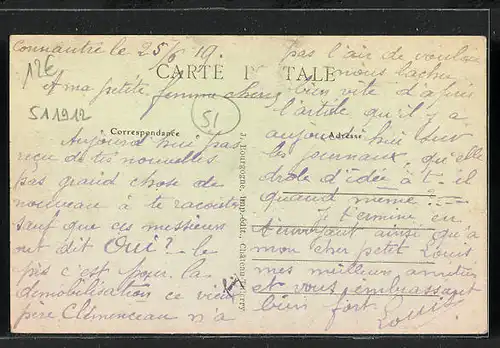 Connantre le 25/6 19.
12€
CARTE POSTALE
A ma petite femme chérie
51
511912
Correspondance
Adresse
Aujourd'hui pas
reçu de tes nouvelles
pas grand chose de
nouveau à te raconter
sauf que ces messieurs
ont dit Oui? le
pis c'est pour la
démobilisation ce vieux
père Clémenceau n'a
J. Bourgogne, imp.-édit., Château-Thierry
pas l'air de vouloir
nous lacher
bien vite d'après
l'article qu'il y a
aujourd'hui sur
les journaux, qu'elle
drole d'idée a t-il
quand meme?
Je termine en
t'envoyant ainsi qu'a
mon cher petit Louis
mes meilleurs amitiés
et vous embrassant
bien fort
Louis